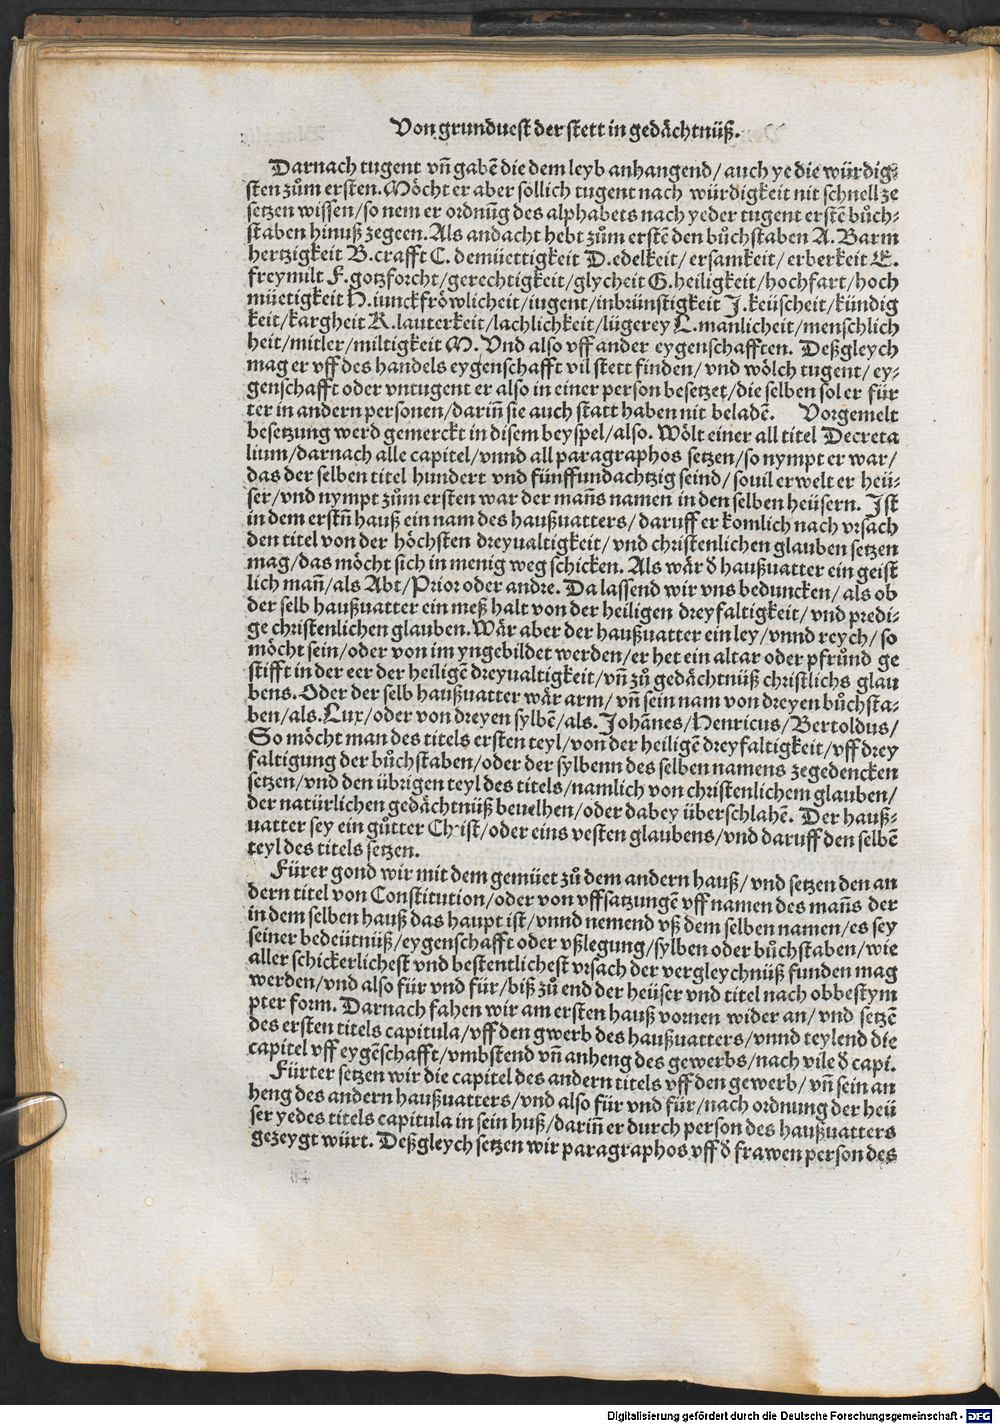 Von grunduest der stett in gedächtnüß.
Darnach tugent vñ gabē die dem leyb anhangend/ auch ye die würdig⸗
sten zům ersten. Möcht er aber sollich tugent nach würdigkeit nit schnell ze
setzen wissen/ so nem er ordnūg des alphabets nach yeder tugent erstē bůch⸗
staben hinuß zegeen. Als andacht hebt zům erstē den bůchstaben A. Barm
hertzigkeit B. crafft C. demüettigkeit D. edelkeit/ ersamkeit/ erberkeit E.
freymilt F. gotzforcht/ gerechtigkeit/ glycheit G. heiligkeit/ hochfart/ hoch
müetigkeit H. iunckfröwlicheit/ iugent/ inbrünstigkeit J. keüscheit/ kündig
keit/ kargheit K. lauterkeit/ lachlichkeit/ lügerey L. manlicheit/ menschlich
heit/ mitler/ miltigkeit M. Vnd also vff ander eygenschafften. Deßgleych
mag er vff des handels eygenschafft vil stett finden/ vnd wölch tugent/ ey⸗
genschafft oder vntugent er also in einer person besetzet/ die selben sol er für
ter in andern personen/ dariñ sie auch statt haben nit beladē. Vorgemelt
besetzung werd gemerckt in disem beyspel/ also. Wölt einer all titel Decreta
lium/ darnach alle capitel/ vnnd all paragraphos setzen/ so nympt er war/
das der selben titel hundert vnd fünffundachtzig seind/ souil erwelt er heü⸗
ser/ vnd nympt zům ersten war der mañs namen in den selben heüsern. Ist
in dem erstñ hauß ein nam des haußuatters/ daruff er komlich nach vrsach
den titel von der höchsten dreyualtigkeit/ vnd christenlichen glauben setzen
mag/ das möcht sich in menig weg schicken. Als wär d̄ haußuatter ein geist
lich mañ/ als Abt/ Prior oder andre. Da lassend wir vns beduncken/ als ob
der selb haußuatter ein meß halt von der heiligen dreyfaltigkeit/ vnd predi⸗
ge christenlichen glauben. Wär aber der haußuatter ein ley/ vnnd reych/ so
möcht sein/ oder von im yngebildet werden/ er het ein altar oder pfrůnd ge
stifft in der eer der heiligē dreyualtigkeit/ vñ zů gedächtnüß christlichs glau
bens. Oder der selb haußuatter wär arm/ vñ sein nam von dreyen bůchsta⸗
ben/ als. Lux/ oder von dreyen sylbē/ als. Johānes/ Henricus/ Bertoldus/
So möcht man des titels ersten teyl/ von der heiligē dreyfaltigkeit/ vff drey
faltigung der bůchstaben/ oder der sylbenn des selben namens zegedencken
setzen/ vnd den übrigen teyl des titels/ namlich von christenlichem glauben/
der natürlichen gedächtnüß beuelhen/ oder dabey überschlahē. Der hauß⸗
uatter sey ein gůtter Christ/ oder eins vesten glaubens/ vnd daruff den selbē
teyl des titels setzen.
Fürer gond wir mit dem gemüet zů dem andern hauß/ vnd setzen den an
dern titel von Constitution/ oder von vffsatzungē vff namen des mañs der
in dem selben hauß das haupt ist/ vnnd nemend vß dem selben namen/ es sey
seiner bedeütnüß/ eygenschafft oder vßlegung/ sylben oder bůchstaben/ wie
aller schickerlichest vnd bestentlichest vrsach der vergleychnüß funden mag
werden/ vnd also für vnd für/ biß zů end der heüser vnd titel nach obbestym
pter form. Darnach fahen wir am ersten hauß vornen wider an/ vnd setzē
des ersten titels capitula/ vff den gwerb des haußuatters/ vnnd teylend die
capitel vff eygēschafft/ vmbstend vñ anheng des gewerbs/ nach vile d̄ capi.
Fürter setzen wir die capitel des andern titels vff den gewerb/ vñ sein an
heng des andern haußuatters/ vnd also für vnd für/ nach ordnung der heü
ser yedes titels capitula in sein huß/ dariñ er durch person des haußuatters
gezeygt würt. Deßgleych setzen wir paragraphos vff d̄ frawen person des
Digitalisierung gefördert durch die Deutsche Forschungsgemeinschaft - DFG